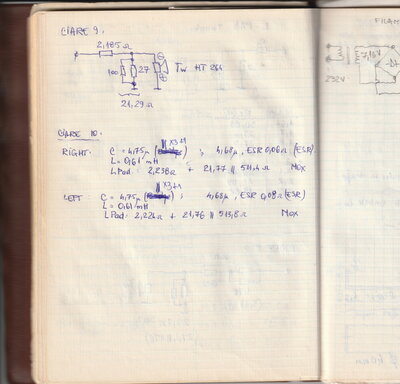 CIARE 9.
2,185Ω
100
27
TW HT 264
21,29Ω
CIARE 10.
|| X3+1
RIGHT: C = 4,75μ ; 4,68μ, ESR 0,06Ω (ESR)
L = 0,61 mH
L Pad: 2,238Ω + 21,77 || 511,4Ω Mox
|| X3+1
LEFT: C = 4,75μ 4,68μ, ESR 0,08Ω (ESR)
L = 0,61 mH
L Pad: 2,224Ω + 21,76 || 513,8Ω Mox
FILAM
232V